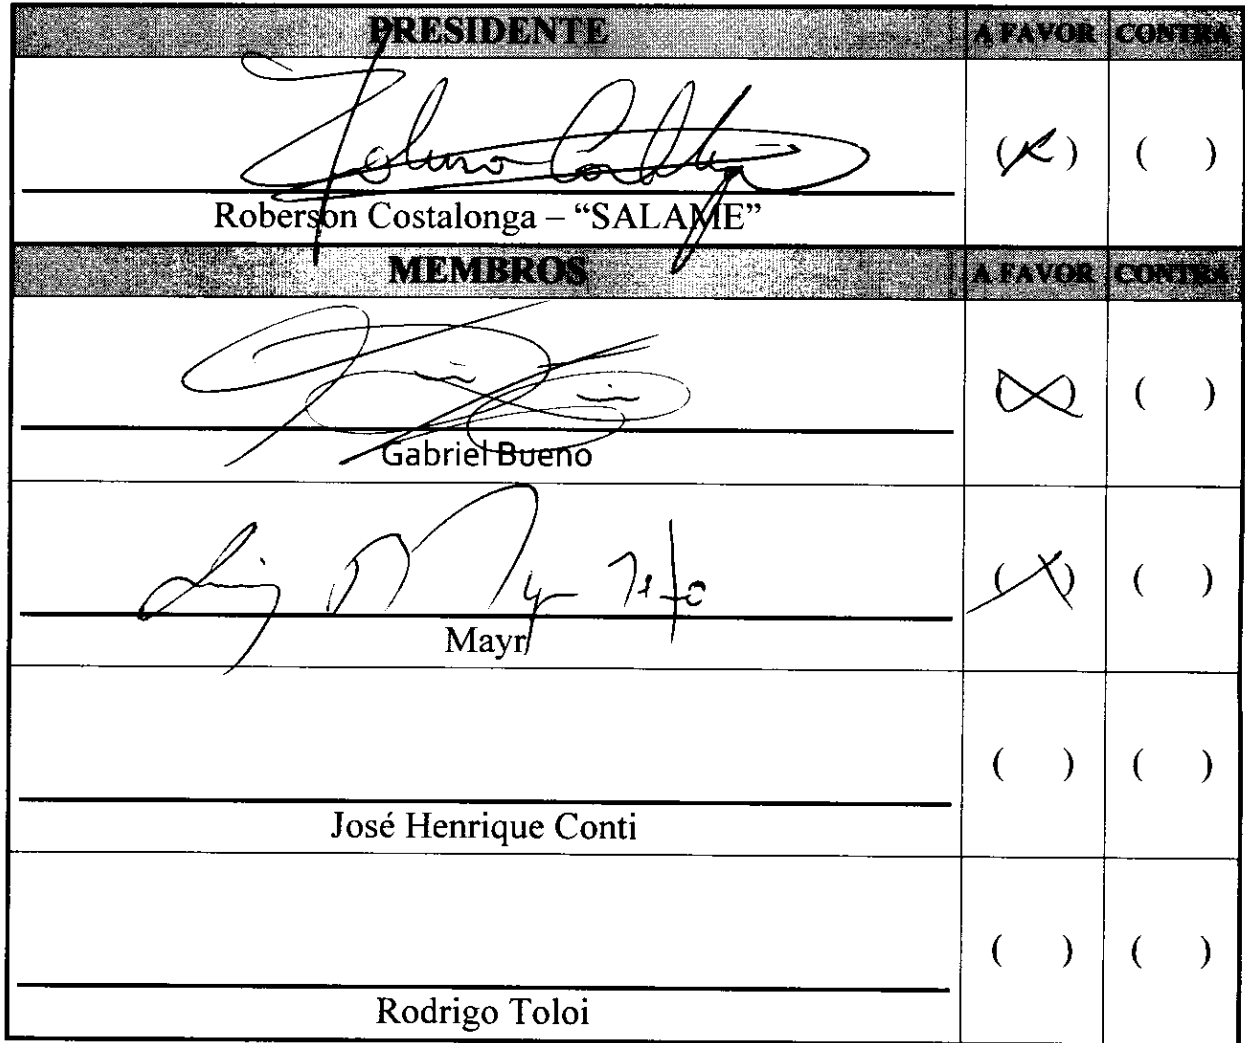 PRESIDENTE A FAVOR CONTRA
( ) ( )
Roberson Costalonga – “SALAME”
MEMBROS A FAVOR CONTRA
(X) ( )
Gabriel Bueno
(X) ( )
Mayr
( ) ( )
José Henrique Conti
( ) ( )
Rodrigo Toloi